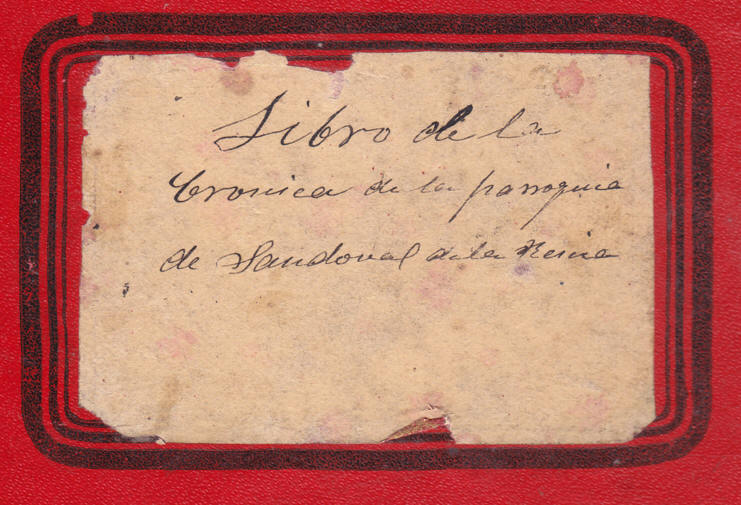 Libro de la
Cronica de la parroquia
de Sandoval de la Reina